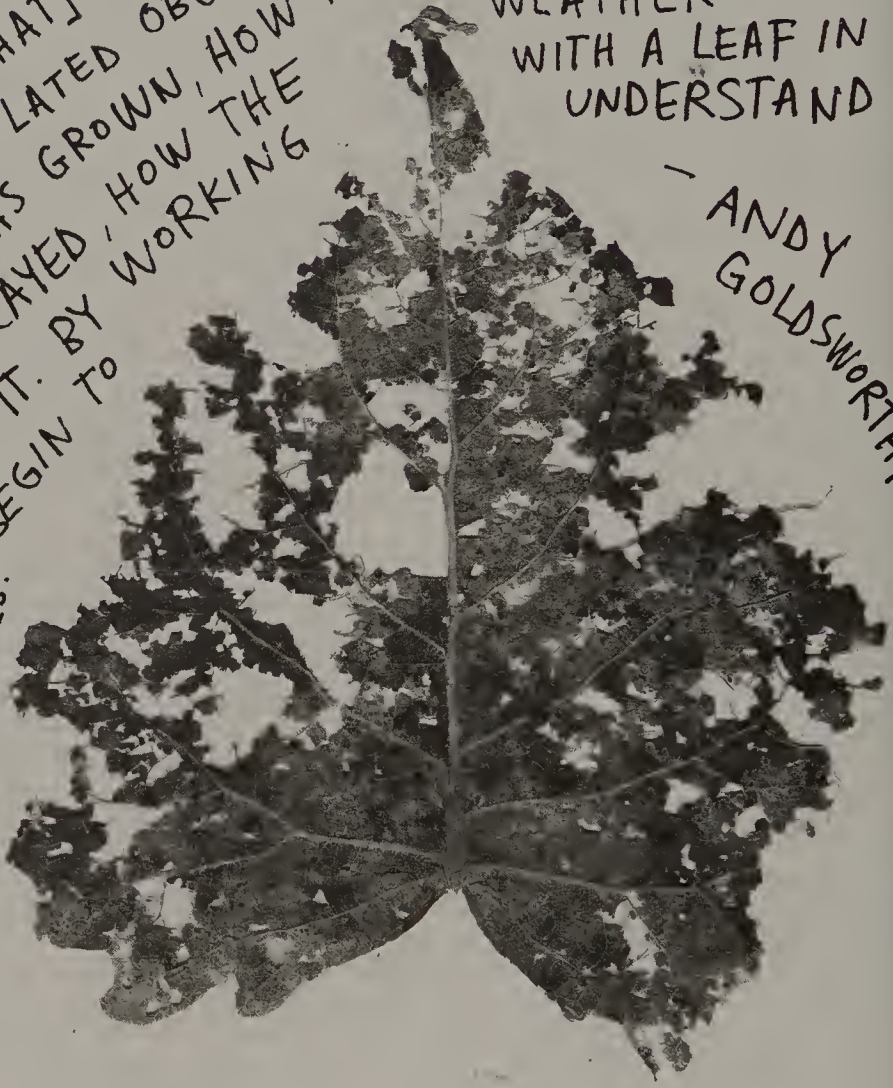 HAT]
LATED
S GROWN, HOW
AYED, HOW THE
IT. BY WORKING
EGIN TO
WEATHER
WITH A LEAF IN
UNDERSTAND
— ANDY
GOLDSWORTH